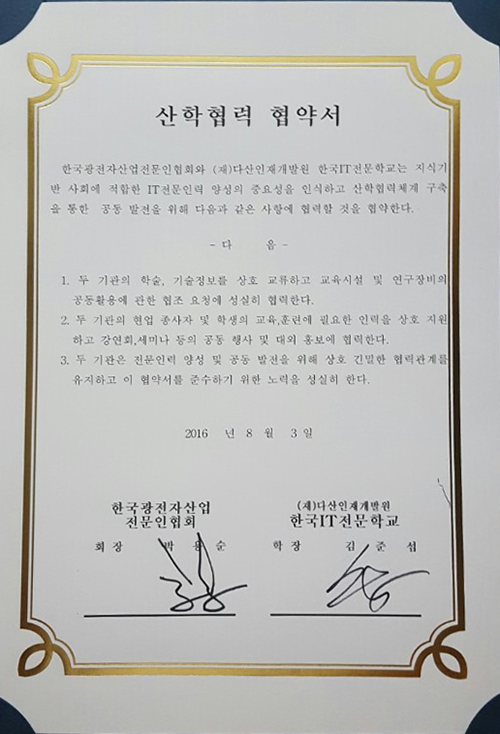 산학협력 협약서
한국광전자산업전문인협회와 (재)다산인재개발원 한국IT전문학교는 지식기
반 사회에 적합한 IT전문인력 양성의 중요성을 인식하고 산학협력체계 구축
을 통한 공동 발전을 위해 다음과 같은 사항에 협력할 것을 협약한다.
- 다 음 -
1. 두 기관의 학술, 기술정보를 상호 교류하고 교육시설 및 연구장비의
공동활용에 관한 협조 요청에 성실히 협력한다.
2. 두 기관의 현업 종사자 및 학생의 교육,훈련에 필요한 인력을 상호 지원
하고 강연회,세미나 등의 공동 행사 및 대외 홍보에 협력한다.
3. 두 기관은 전문인력 양성 및 공동 발전을 위해 상호 긴밀한 협력관계를
유지하고 이 협약서를 준수하기 위한 노력을 성실히 한다.
2016 년 8 월 3 일
한국광전자산업
전문인협회
회 장 박 용 순
(재)다산인재개발원
한국IT전문학교
학 장 김 준 섭